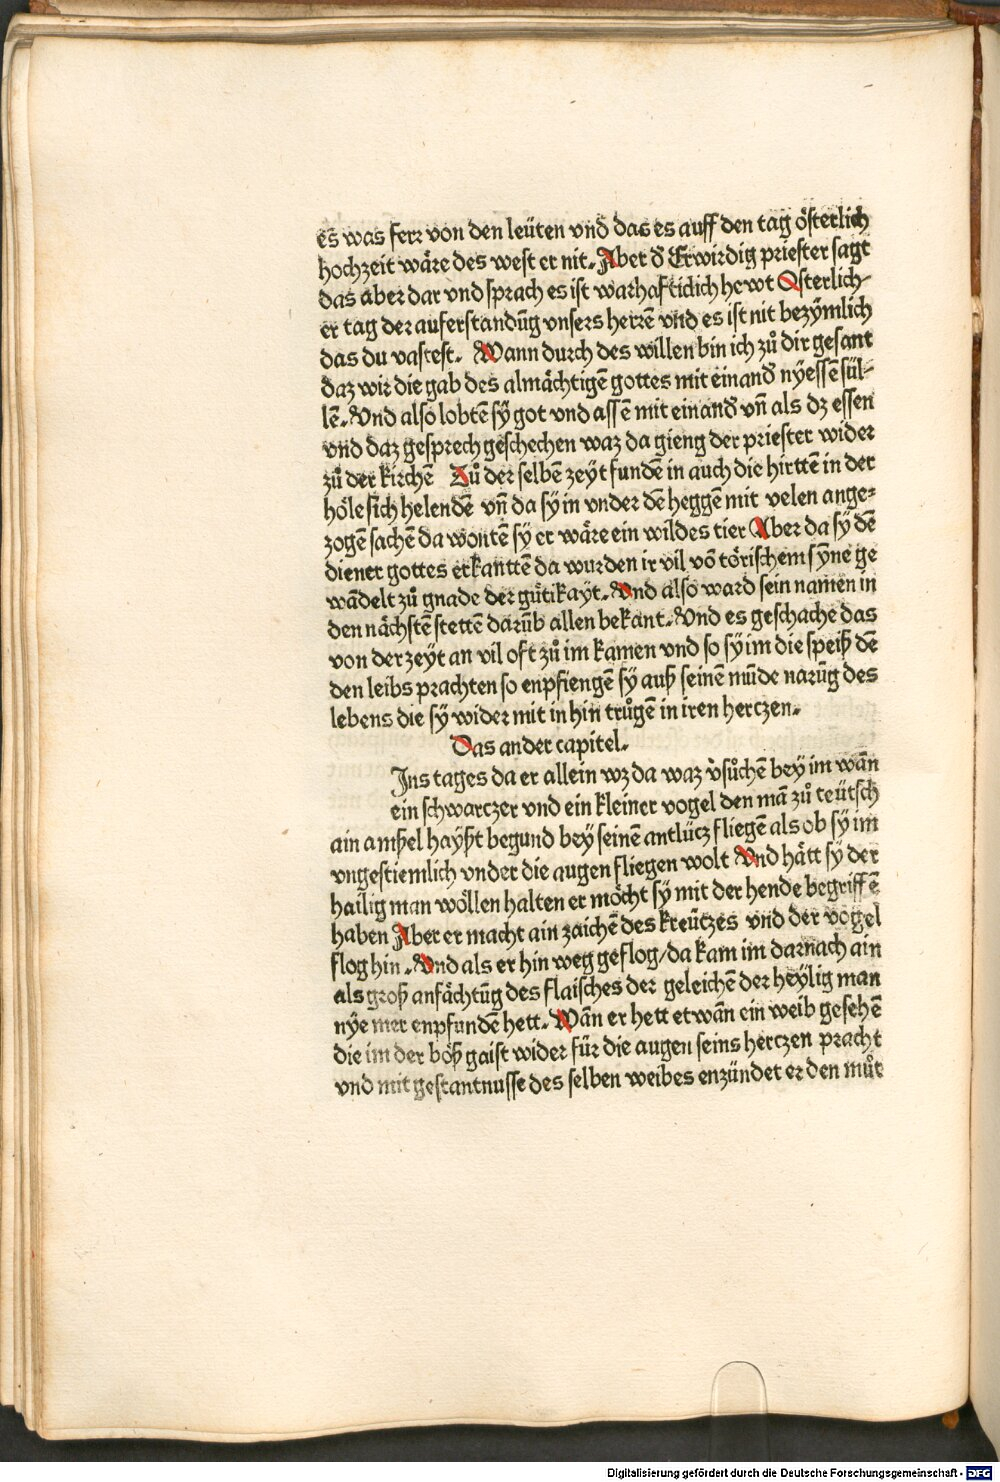 es was ferr von den leüten vnd das es auff den tag österlich
hochzeit wäre des west er nit. Aber đ Erwirdig priester sagt
das aber dar vnd sprach es ist warhafticlich hewt Osterlich⸗
er tag der auferstandūg vnsers herrē vnd es ist nit bezÿmlich
das du vastest. Wann durch des willen bin ich zů dir gesant
daz wir die gab des almächtigē gottes mit einanđ nÿessē sül⸗
lē. Vnd also lobtē sÿ got vnd assē mit einanđ vn̄ als dz essen
vnd daz gesprech geschechen waz da gieng der priester wider
zů der kirchē Zů der selbē zeÿt fundē in auch die hirttē in der
höle sich helendē vn̄ da sÿ in vnder dē heggē mit velen ange⸗
zogē sachē da wontē sÿ er wäre ein wildes tier Aber da sÿ dē
diener gottes erkanttē da wurden ir vil vō törischem sÿne ge
wādelt zů gnade der gütikaÿt. Vnd also ward sein namen in
den nächstē stettē darūb allen bekant. Vnd es geschache das
von der zeÿt an vil oft zů im kamen vnd so sÿ im die speiß dē
den leibs prachten so enpfiengē sÿ auß seinē mūde narūg des
lebens die sÿ wider mit in hin trůgē in iren herczen.
Das ander capitel.
Ins tages da er allein wz da waz v̉sůchē bey im wān
ein schwarczer vnd ein kleiner vogel den mā zů teütsch
ain amßel haÿßt begund bey seinē antlücz fliegē als ob sÿ im
vngestiemlich vnder die augen fliegen wolt Vnd hätt sÿ der
hailig man wöllen halten er möcht sÿ mit der hende begriffē
haben Aber er macht ain zaichē des kreütczes vnd der vogel
flog hin. Vnd als er hin weg geflog/ da kam im darnach ain
als groß anfächtūg des flaisches der geleichē der heÿlig man
nÿe mer enpfundē hett. Wān er hett etwān ein weib gesehē
die im der böß gaist wider für die augen seins herczen pracht
vnd mit gestantnusse des selben weibes enzündet er den můt
Digitalisierung gefördert durch die Deutsche Forschungsgemeinschaft - DFG